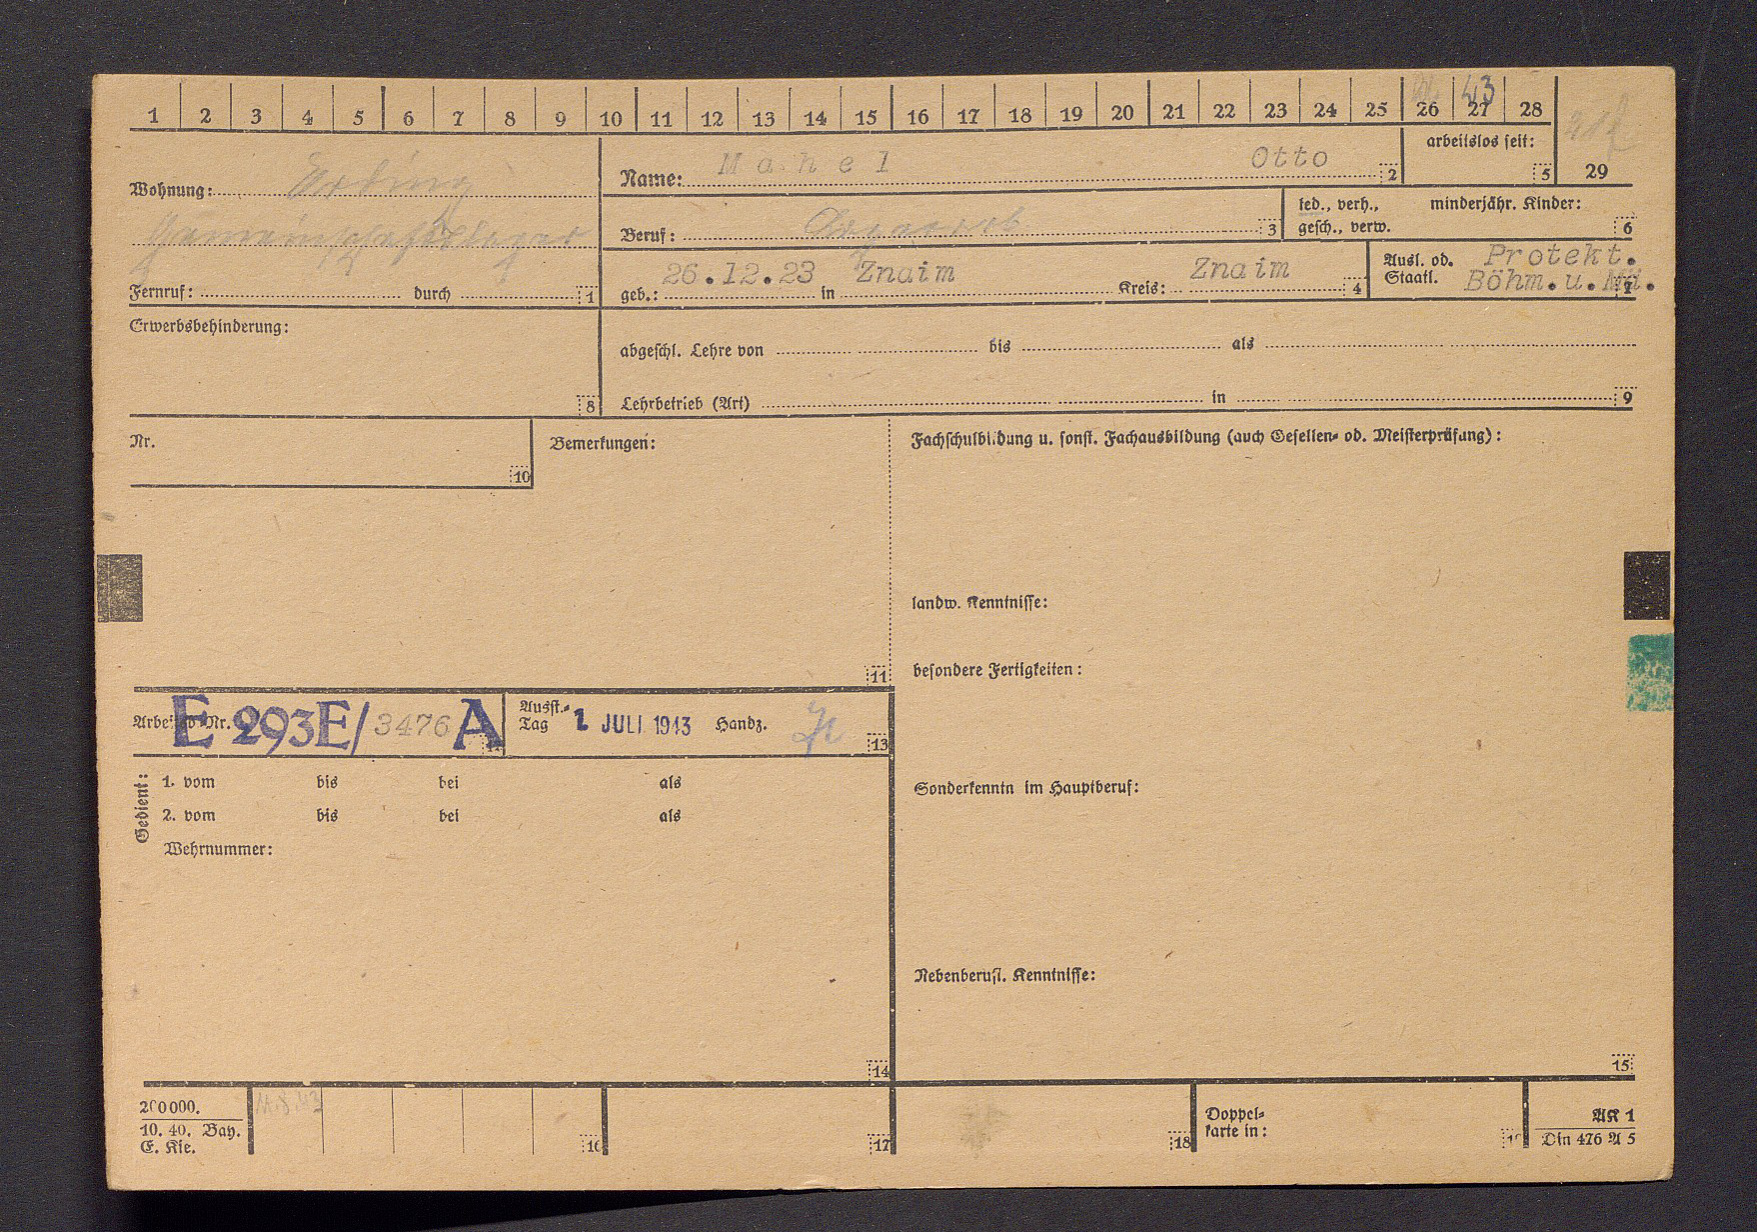 1 2 3 4 5 6 7 8 9 10 11 12 13 14 15 16 17 18 19 20 21 22 23 24 25 26 27 28
43
arbeitslos seit: 5
29
Wohnung: Erding
Gemeinschaftslager
Fernruf: durch 1
Name: Mahel Otto 2
Beruf: 3
led., verh., minderjähr. Kinder:
gesch., verw. 6
geb.: 26.12.23 in Znaim Kreis: Znaim 4
Ausl. od. Protekt.
Staatl. Böhm.u.Mä. 7
Erwerbsbehinderung:
8
abgeschl. Lehre von bis als
Lehrbetrieb (Art) in 9
Nr.
10
Bemerkungen:
11
Fachschulbildung u. sonst. Fachausbildung (auch Gesellen- od. Meisterprüfung):
landw. Kenntnisse:
besondere Fertigkeiten:
Sonderkenntn im Hauptberuf:
Nebenberufl. Kenntnisse:
15
Arbeitsb.Nr. E 293E/3476 A
Ausst.-
Tag 2 JULI 1943 Handz. 13
Gedient:
1. vom bis bei als
2. vom bis bei als
Wehrnummer:
14
200000.
10. 40. Bay.
E. Kie.
11.8.43
16
17
18
Doppel-
karte in:
19
AK 1
Din 476 A 5